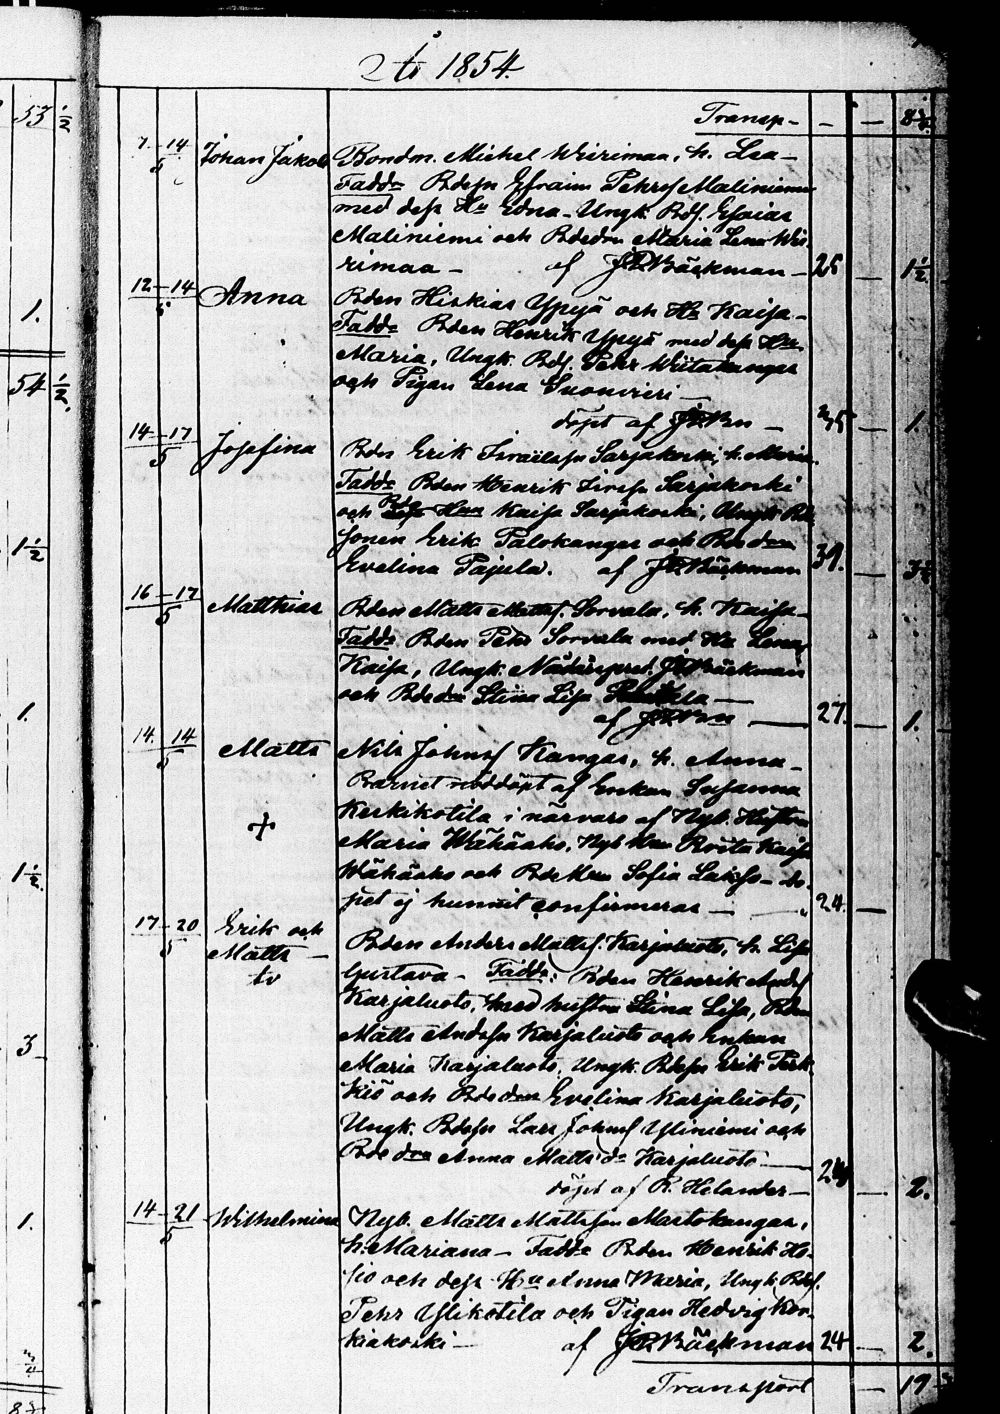 Åo 1854.
53 1/2
Transp -
7-14/5 Johan Jakob Bondn. Michel Weirimaa, h. Lea -
Fadd. Bdesn Efraim Pehrss Maliniemi
med dess Hu Edna - Ungk. Bds. Esaias
Maliniemi och Bdedn Maria Lena Wei-
rimaa - af J.P. Bäckman - 25 1 1/2
12-14/5 Anna Bden Hiskias Ypyä och Hu Kaisa -
1.
Fadd. Bden Henrik Ypyä med dess Hu
Maria, Ungk. Bds. Pehr Wiitakangas
54 1/2
och Pigan Lena Suonvieri -
döpt af - 35 - 1.
14-17/5 Josefina Bdn Erik Israelssn Sarjakoski, h. Maria
Fadd. Bden Henrik Sarjakoski
och Kaisa Sarjakoski, Ungk.
sonen Erik Palokangas och Bdedn
1 1/2
Evelina Pajula. af J.P. Bäckman 31. - 3 1/2
16-17/5 Matthias Bden Matts Mattss. Sorvala, h. Kaisa -
Fadd. Bden Pehr Sorvala med Hu Lena
Kaisa, Ungk. Nådårspred. J.P. Bäckman
och Bdedn Stina Lisa
1.
af 27. - 1.
14-14/5 Matts Nils Johnss Kangas, h. Anna -
Barnet nöddöpt af Enkan Susanna
Kerkikotila i närvaro af Nyb. Hustrn
+ Maria Wähäaho, Nyb Hun Kaisa
1 1/2
Wähäaho och Bde Hun Sofia Lakso - do-
pet ej hunnit confirmeras - 24. -
17-20/5 Erik och Matts tv Bden Anders Mattss. Karjaluoto, h. Lisa
Gustava - Fadd.: Bden Henrik Andss
Karjaluoto, med hustru Stina Lisa, Bden
Matts Andssn Karjaluoto och Enkan
3
Maria Karjaluoto, Ungk. Bdesn Erik Perk-
kiö och Bdedn Evelina Karjaluoto,
Ungk. Bdesn Lars Johnss Yliniemi och
Bdedn Anna Matts do Karjaluoto -
döpt af R. Helander - 2.
14-21/5 Wilhelmina Nyb. Matts Mattsson Martokangas,
1.
h. Mariana - Fadd. Bden Henrik Ho-
sio och dess Hu Anna Maria, Ungk. Bds.
Pehr Ylikotila och Pigan Hedvig Kor-
kiakoski - af J.P. Bäckman 24 - 2.
3/4
Transport - 19